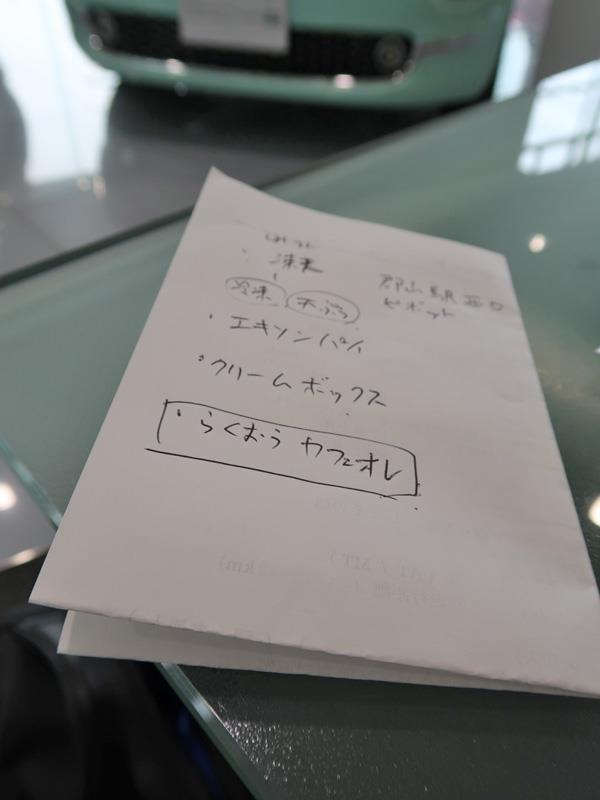 ・凍天
冷凍 天ぷら
郡山駅西口
ピボット
・エキソンパイ
・クリームボックス
・らくおう カフェオレ